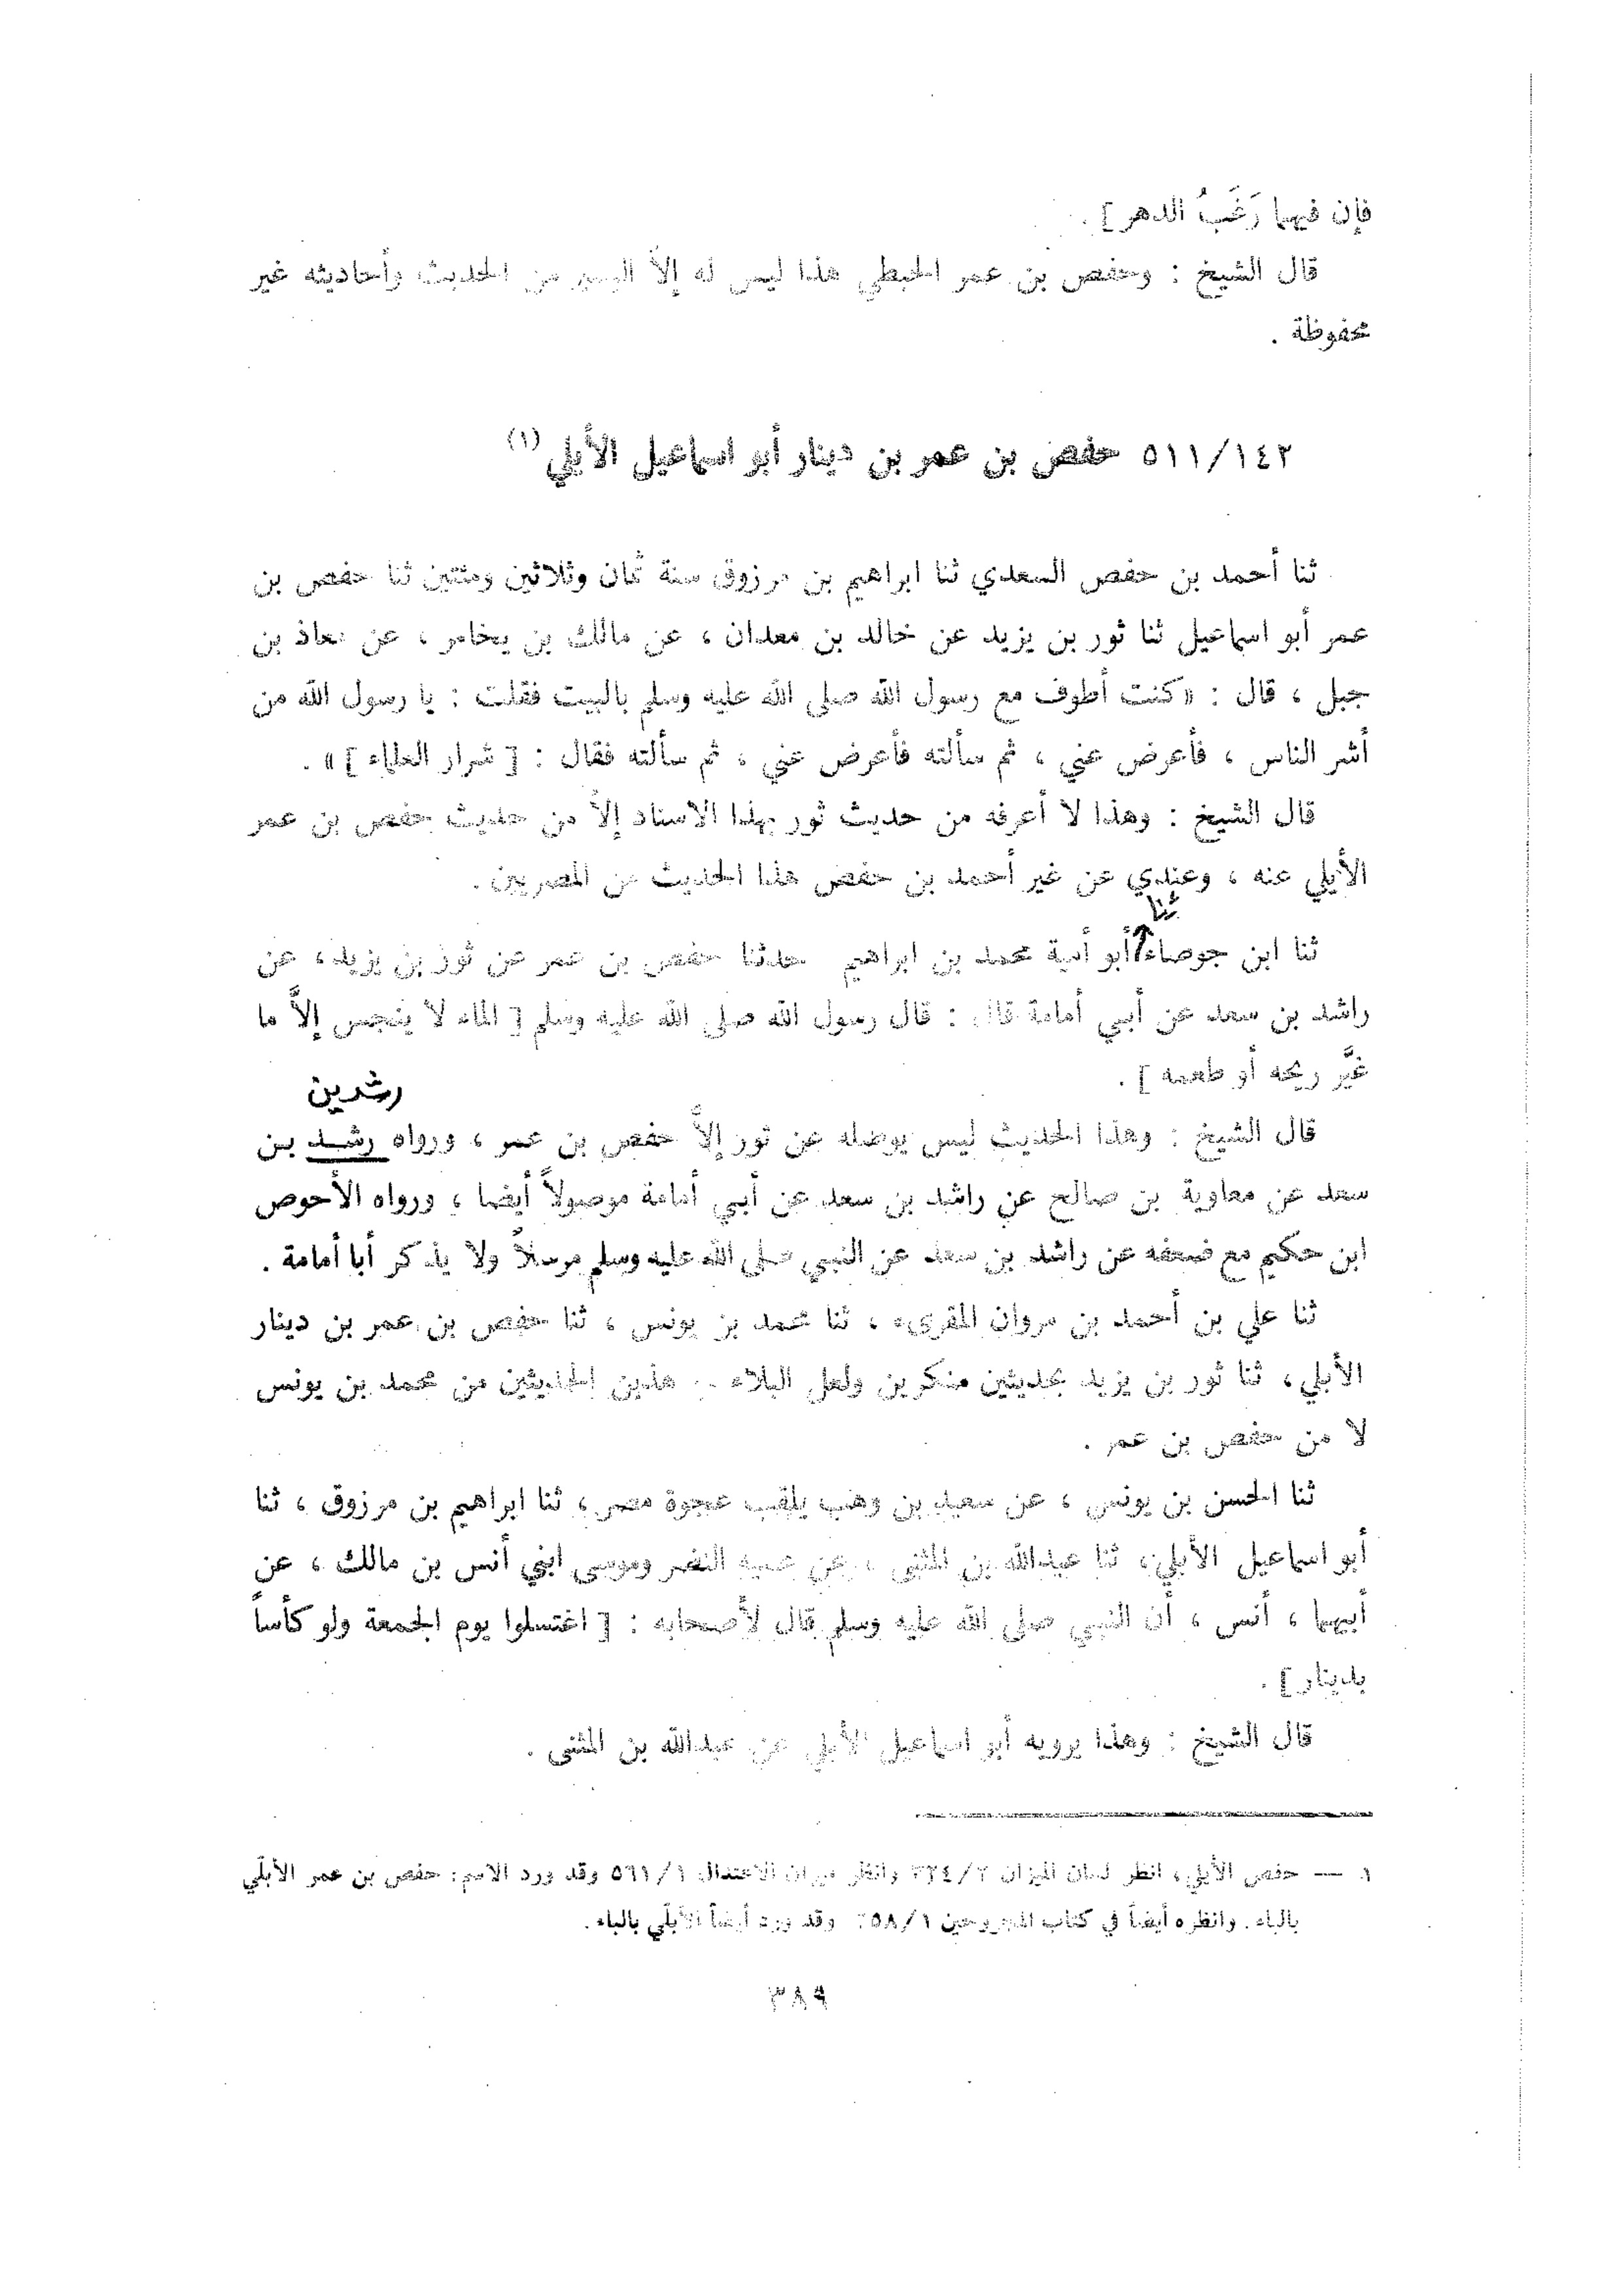 فإن فيها رَغَبُ الدهر] .
قال الشيخ : وحفص بن عمر الحبطي هذا ليس له إلاّ اليسير من الحديث وأحاديثه غير
محفوظة .
٥١١/١٤٢ حفص بن عمر بن دينار أبو اسماعيل الأيلي (١)
ثنا أحمد بن حفص السعدي ثنا ابراهيم بن مرزوق سنة ثمان وثلاثين ومئتين ثنا حفص بن
عمر أبو اسماعيل ثنا ثور بن يزيد عن خالد بن معدان ، عن مالك بن يخامر ، عن معاذ بن
جبل ، قال : «كنت أطوف مع رسول الله صلى الله عليه وسلم بالبيت فقلت : يا رسول الله من
أشر الناس ، فأعرض عني ، ثم سألته فأعرض عني ، ثم سألته فقال : [ شرار العلماء ] » .
قال الشيخ : وهذا لا أعرفه من حديث ثور بهذا الاسناد إلاّ من حديث حفص بن عمر
الأيلي عنه ، وعندي عن غير أحمد بن حفص هذا الحديث من المصريين .
ثنا
ثنا ابن جوصاء أبو أمية محمد بن ابراهيم حدثنا حفص بن عمر عن ثور بن يزيد ، عن
راشد بن سعد عن أبي أمامة قال : قال رسول الله صلى الله عليه وسلم [ الماء لا ينجس إلاَّ ما
غيَّر ريحه أو طعمه ] .
رشدين
قال الشيخ : وهذا الحديث ليس يوصله عن ثور إلاّ حفص بن عمر ، ورواه رشد بن
سعد عن معاوية بن صالح عن راشد بن سعد عن أبي أمامة موصولاً أيضا ، ورواه الأحوص
ابن حكيم مع ضعفه عن راشد بن سعد عن النبي صلى الله عليه وسلم مرسلاً ولا يذكر أبا أمامة .
ثنا علي بن أحمد بن مروان المقرىء ، ثنا محمد بن يونس ، ثنا حفص بن عمر بن دينار
الأبلي ، ثنا ثور بن يزيد بحديثين منكرين ولعل البلاء هذين الحديثين من محمد بن يونس
لا من حفص بن عمر .
ثنا الحسن بن يونس ، عن سعيد بن وهب يلقب عجوة مصر ، ثنا ابراهيم بن مرزوق ، ثنا
أبو اسماعيل الأبلي ، ثنا عبدالله بن المثنى ، عن عميه النضر وموسى ابني أنس بن مالك ، عن
أبيهما ، أنس ، أن النبي صلى الله عليه وسلم قال لأصحابه : [ اغتسلوا يوم الجمعة ولو كأساً
بدينار ] .
قال الشيخ : وهذا يرويه أبو اسماعيل الأبلي عن عبدالله بن المثنى .
١ — حفص الأيلي ، انظر لسان الميزان ٣٢٤/٢ وانظر ميزان الاعتدال ٥٦١/١ وقد ورد الاسم : حفص بن عمر الأبلّي
بالباء . وانظره أيضاً في كتاب المجروحين ٢٥٨/١ وقد ورد أيضاً الأبلّي بالباء .
٣٨٩